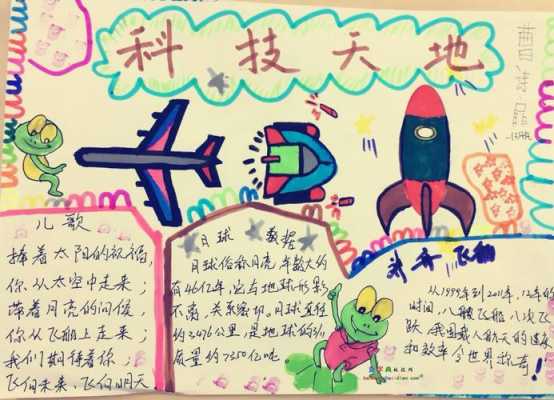 科技天地
儿歌
捧着太阳的祝福,
你,从太空中走来;
带着月亮的问候,
你从飞船上走来;
我们期待着你;
飞向未来、飞向明天
月球 数据
月球俗称月亮,年龄大约
有46亿年,它与地球形影
不离,关系密切,月球直径
约3476公里,是地球的3/11
质量约7350亿吨
神舟飞船
从1999年到2011年,12年的
时间,八艘飞船八次飞
跃,我国载人航天的速度
和效率令世界称奇!